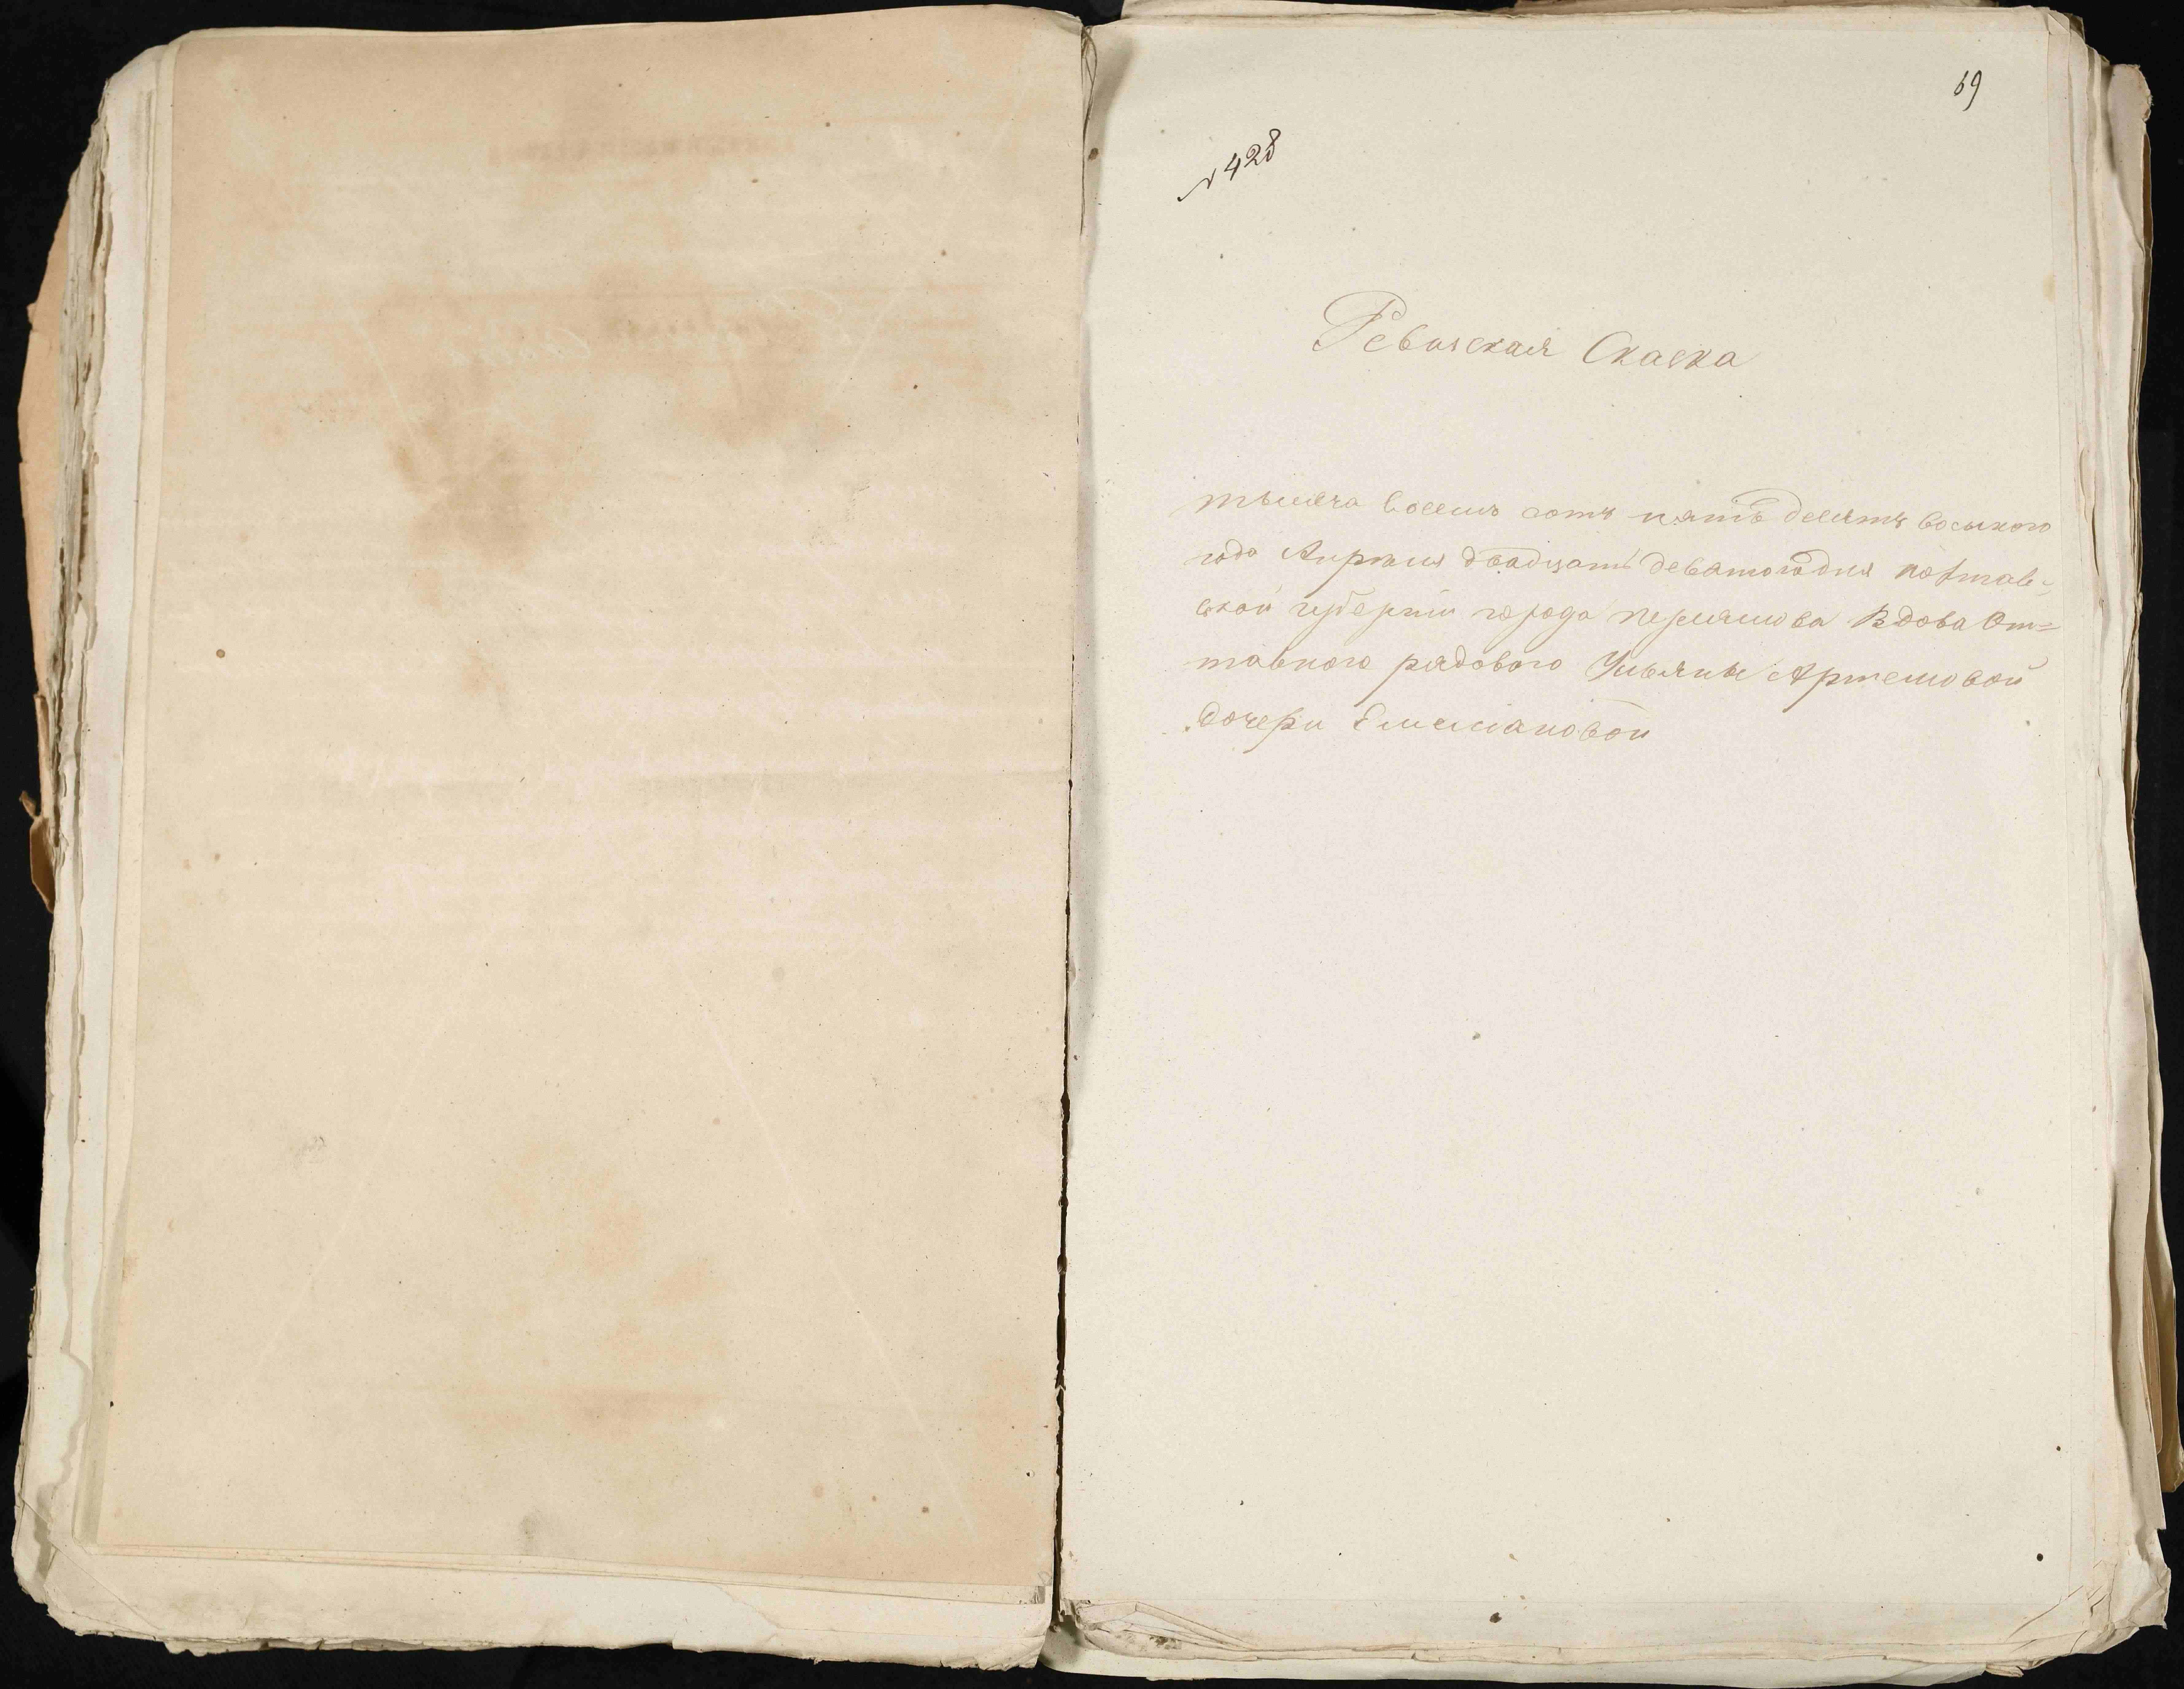 69
№ 428
Ревиская Скаска
тысяча восемь сотъ пять десятъ восмого
года Апреля двадцать девятого дня полтав=
ской губернии города переяслова Вдова От=
тавного рядового Ульяны Артемовой
дочери Емельяновой